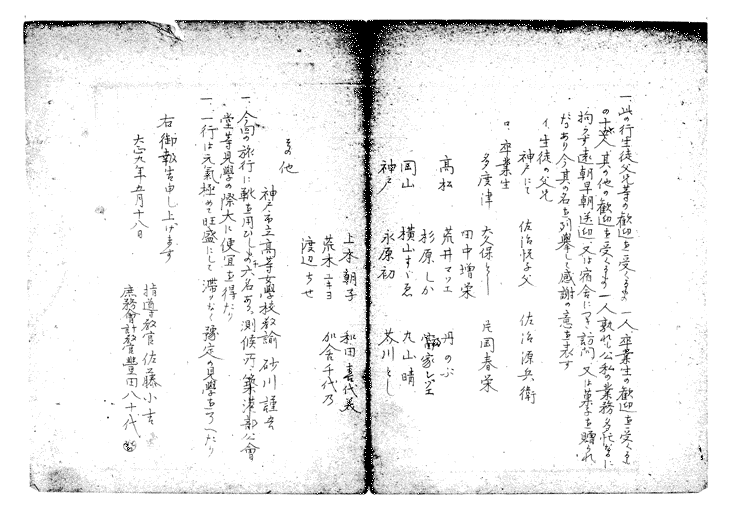 一、此の行生徒父兄等の歓迎を受くるもの 一人 卒業生の歓迎を受くるもの
の十六人 其の他の歓迎を受くるもの 一人 孰れも公私の業務多忙なるに
拘らず遠朝早朝送迎 又は宿舎につき訪問 又は菓子を贈られ
たるあり今其の名を列挙して感謝の意を表す
イ、生徒の父兄
神戸にて 佐治悦子父 佐治源兵衛
ロ、卒業生
多度津 大久保とし 片岡春栄
田中増栄
高松 荒井マツエ 丹のぶ
杉原しか 富家シヅエ
岡山 横山すゞゑ 丸山晴
神戸 永原初 芥川とし
上木朝子 和田喜代美
荒木ユキヨ 加舎千代乃
渡辺ちせ
その他
神戸市立高等女學校教諭 砂川謹吾
一、今回の旅行に靴を用ひしもの六名あり 測候所、築港部公會
堂等見學の際大に便宜を得たり
一、一行は元氣極めて旺盛にして滞りなく豫定の見學を了へたり
右御報告申し上げます
大正九年五月十八日
指導教官 佐藤小吉
庶務會計教官 豊田八十代